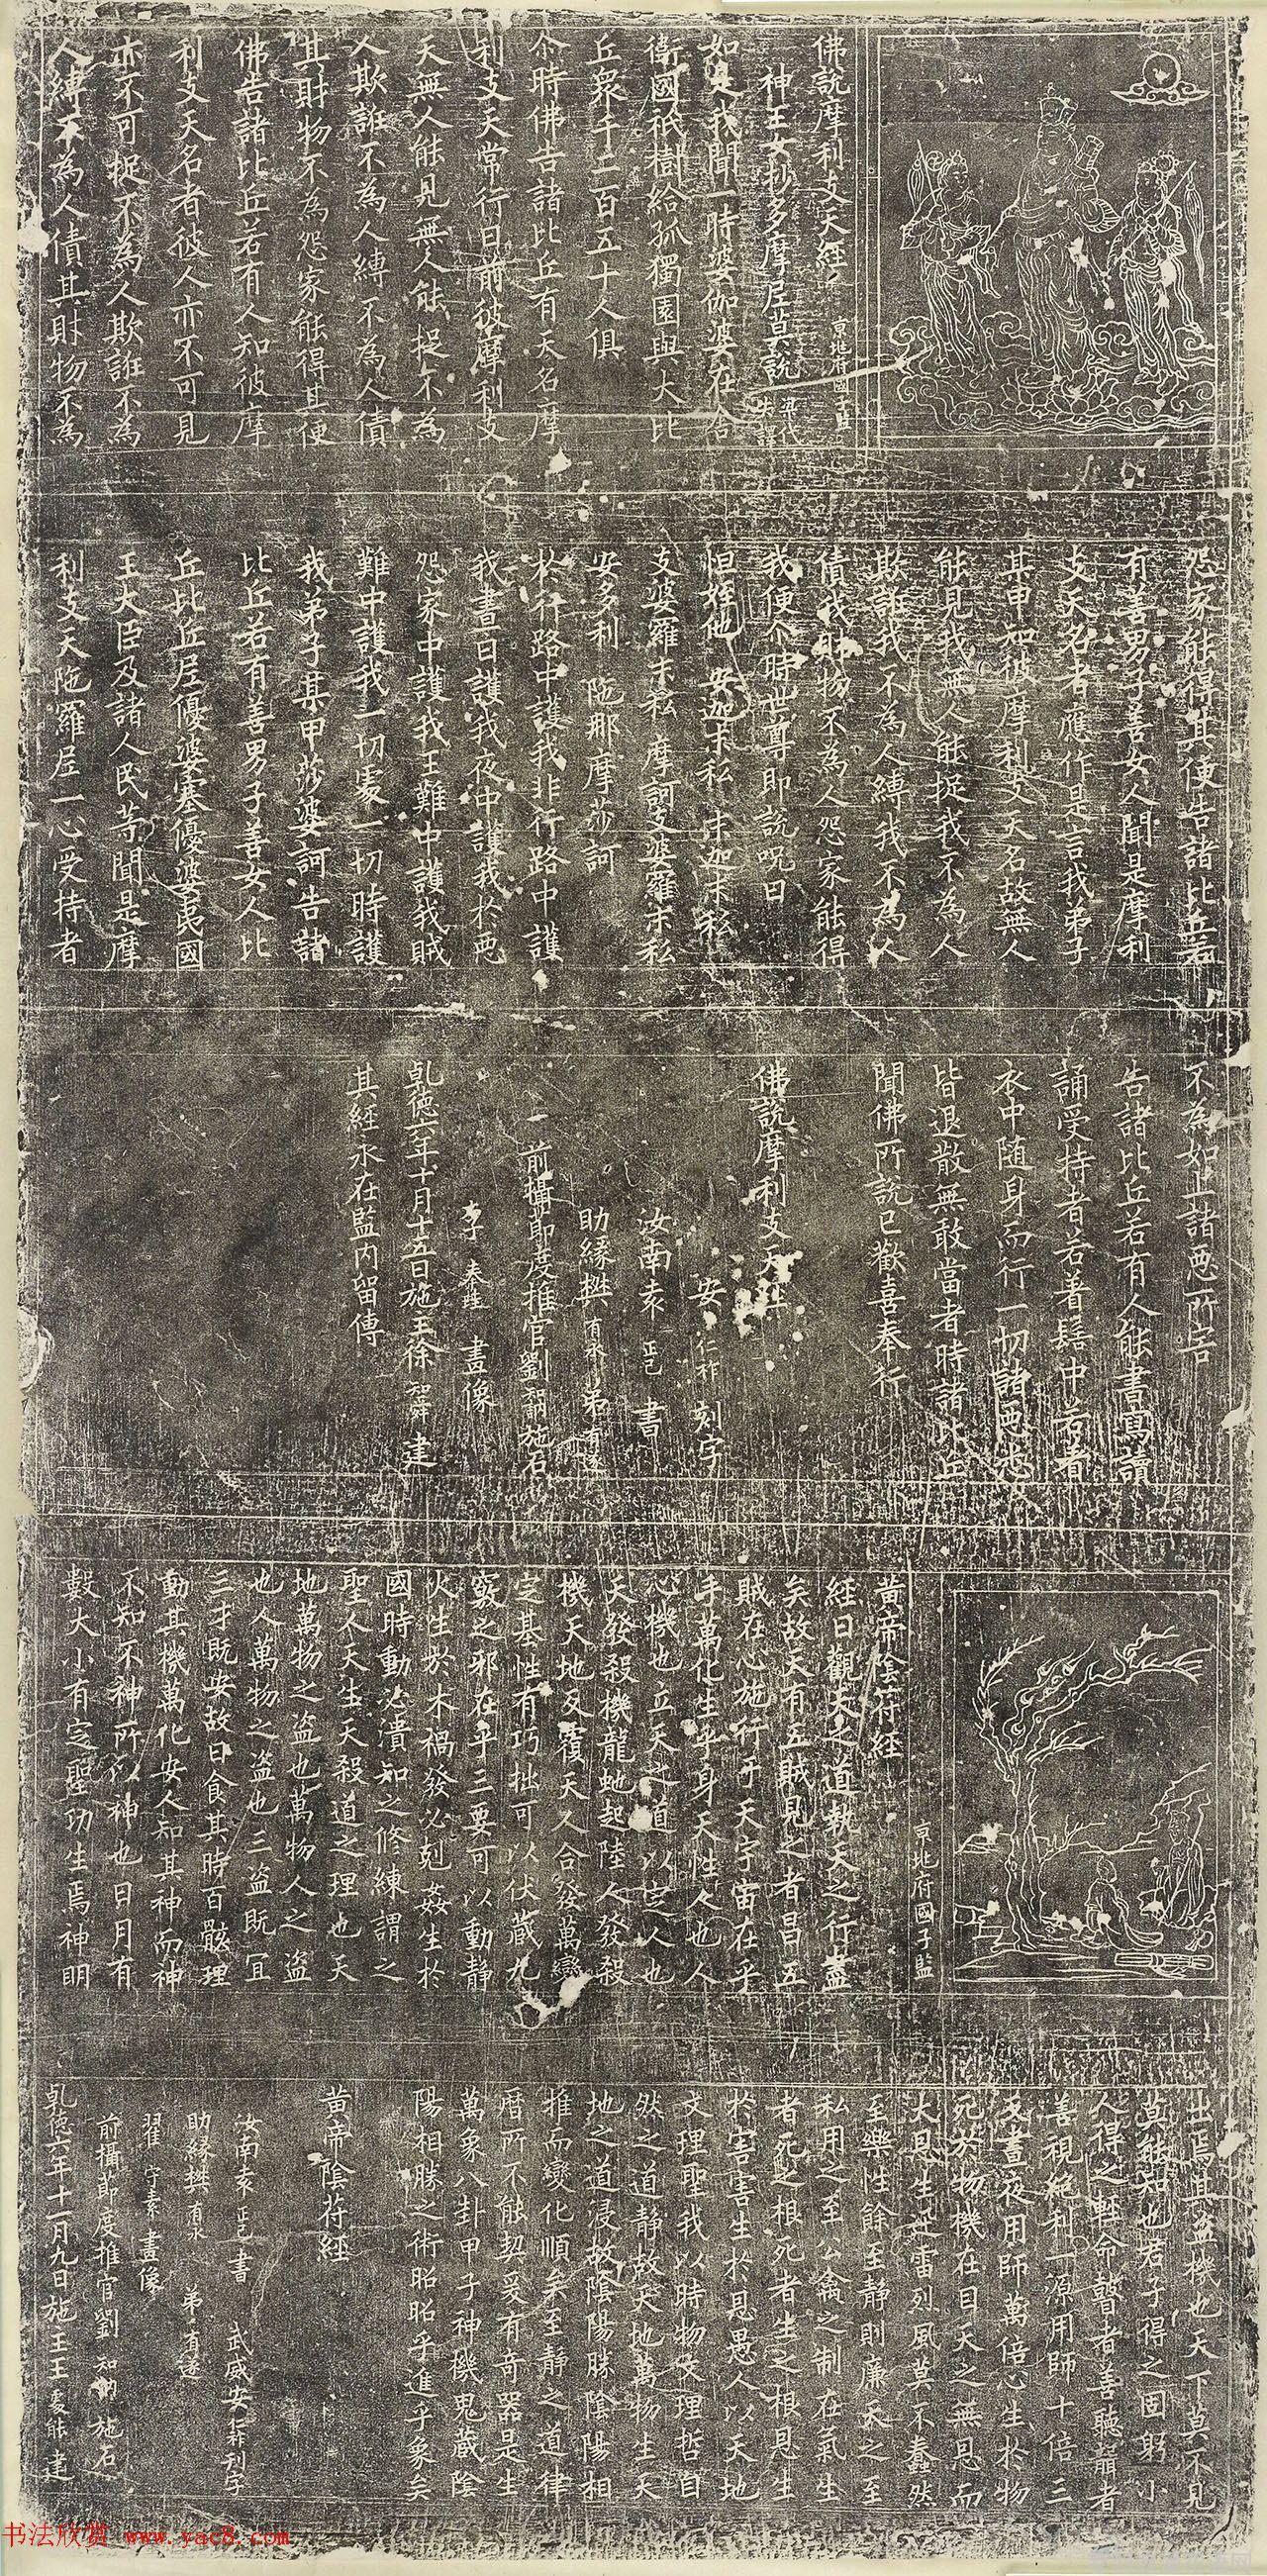 佛說摩利支天經
京兆府國子監
神王女抄多摩尼莫說 梁代失譯
如是我聞一時婆伽婆在舍
衛國祇樹給孤獨園與大比
丘眾千二百五十人俱
尒時佛告諸比丘有天名摩
利支天常行日前彼摩利支
天無人能見無人能捉不為
人欺誑不為人縛不為人債
其財物不為怨家能得其便
佛告諸比丘若有人知彼摩
利支天名者彼人亦不可見
亦不可捉不為人欺誑不為
人縛不為人債其財物不為
怨家能得其便告諸比丘若
有善男子善女人聞是摩利
支天名者應作是言我弟子
某甲知彼摩利支天名故無人
能見我無人能捉我不為人
欺誑我不為人縛我不為人
債我財物不為人怨家能得
我便尒時世尊即說呪曰
怛姪他 安迦末私 末迦末私
支婆羅末私 摩訶支婆羅末私
安多利 陁那摩莎訶
於行路中護我非行路中護
我晝日護我夜中護我於惡
怨家中護我王難中護我賊
難中護我一切處一切時護
我弟子某甲莎婆訶告諸
比丘若有善男子善女人比
丘比丘尼優婆塞優婆夷國
王大臣及諸人民等聞是摩
利支天陁羅尼一心受持者
不為如上諸惡所害
告諸比丘若有人能書寫讀
誦受持者若著髻中若著
衣中隨身而行一切諸惡悉
皆退散無敢當者時諸比丘
聞佛所說已歡喜奉行
佛說摩利支天經
安仁祚 刻字
汝南袁正己 書
助緣樊有永 弟有遂
前攝節度推官劉知訥施石
李奉珪 畫像
乹德六年十月十五日施主徐知舜 建
其經永在監內留傳
京兆府國子監
黃帝陰符經
經曰觀天之道執天之行盡
矣故天有五賊見之者昌五
賊在心施行乎天宇宙在乎
手萬化生乎身天性人也人
心機也立天之道以定人也
天發殺機龍虵起陸人發殺
機天地反覆天人合發萬變
定基性有巧拙可以伏藏九
竅之邪在乎三要可以動靜
火生於木禍發必剋姦生於
國時動必潰知之修練謂之
聖人天生天殺道之理也天
地萬物之盜也萬物人之盜
也人萬物之盜也三盜既宜
三才既安故曰食其時百骸理
動其機萬化安人知其神而神
不知不神所以神也日月有
數大小有定聖功生焉神明
出焉其盜機也天下莫不見
莫能知也君子得之固躬小
人得之輕命瞽者善聽聾者
善視絕利一源用師十倍三
反晝夜用師萬倍心生於物
死於物機在目天之無恩而
大恩生迅雷烈風莫不蠢然
至樂性餘至靜則廉天之至
私用之至公禽之制在氣生
者死之根死者生之根恩生
於害害生於恩愚人以天地
文理聖我以時物文理哲自
然之道靜故天地萬物生天
地之道浸故陰陽勝陰陽相
推而變化順矣至靜之道律
曆所不能契爰有奇器是生
萬象八卦甲子神機鬼藏陰
陽相勝之術昭昭乎進乎象矣
黃帝陰符經
汝南袁正己書 武威安仁祚刊字
助緣樊有永 弟有遂
翟守素畫像
前攝節度推官劉知訥施石
乹德六年十一月九日施主王 能建
书法欣赏 www.yac8.com